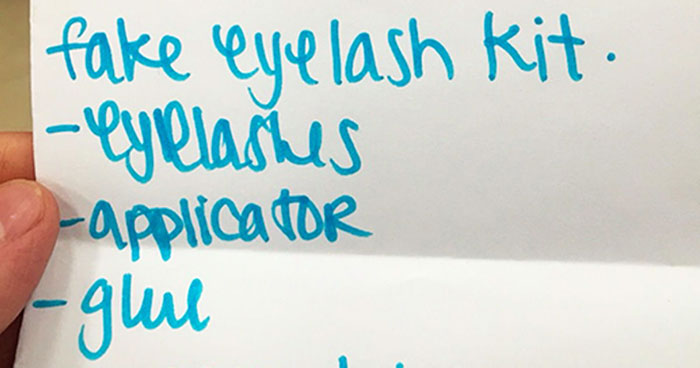 fake eyelash kit.
-eyelashes
-applicatoR
-glue